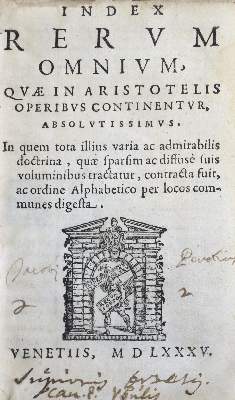 INDEX
RERVM
OMNIVM,
QVÆ IN ARISTOTELIS
OPERIBVS CONTINENTVR,
ABSOLVTISSIMVS.
In quem tota illius varia ac admirabilis
doctrina, quæ sparsim ac diffusè suis
voluminibus tractatur, contracta fuit,
ac ordine Alphabetico per locos com-
munes digesta.
VENETIIS, M D LXXXV.